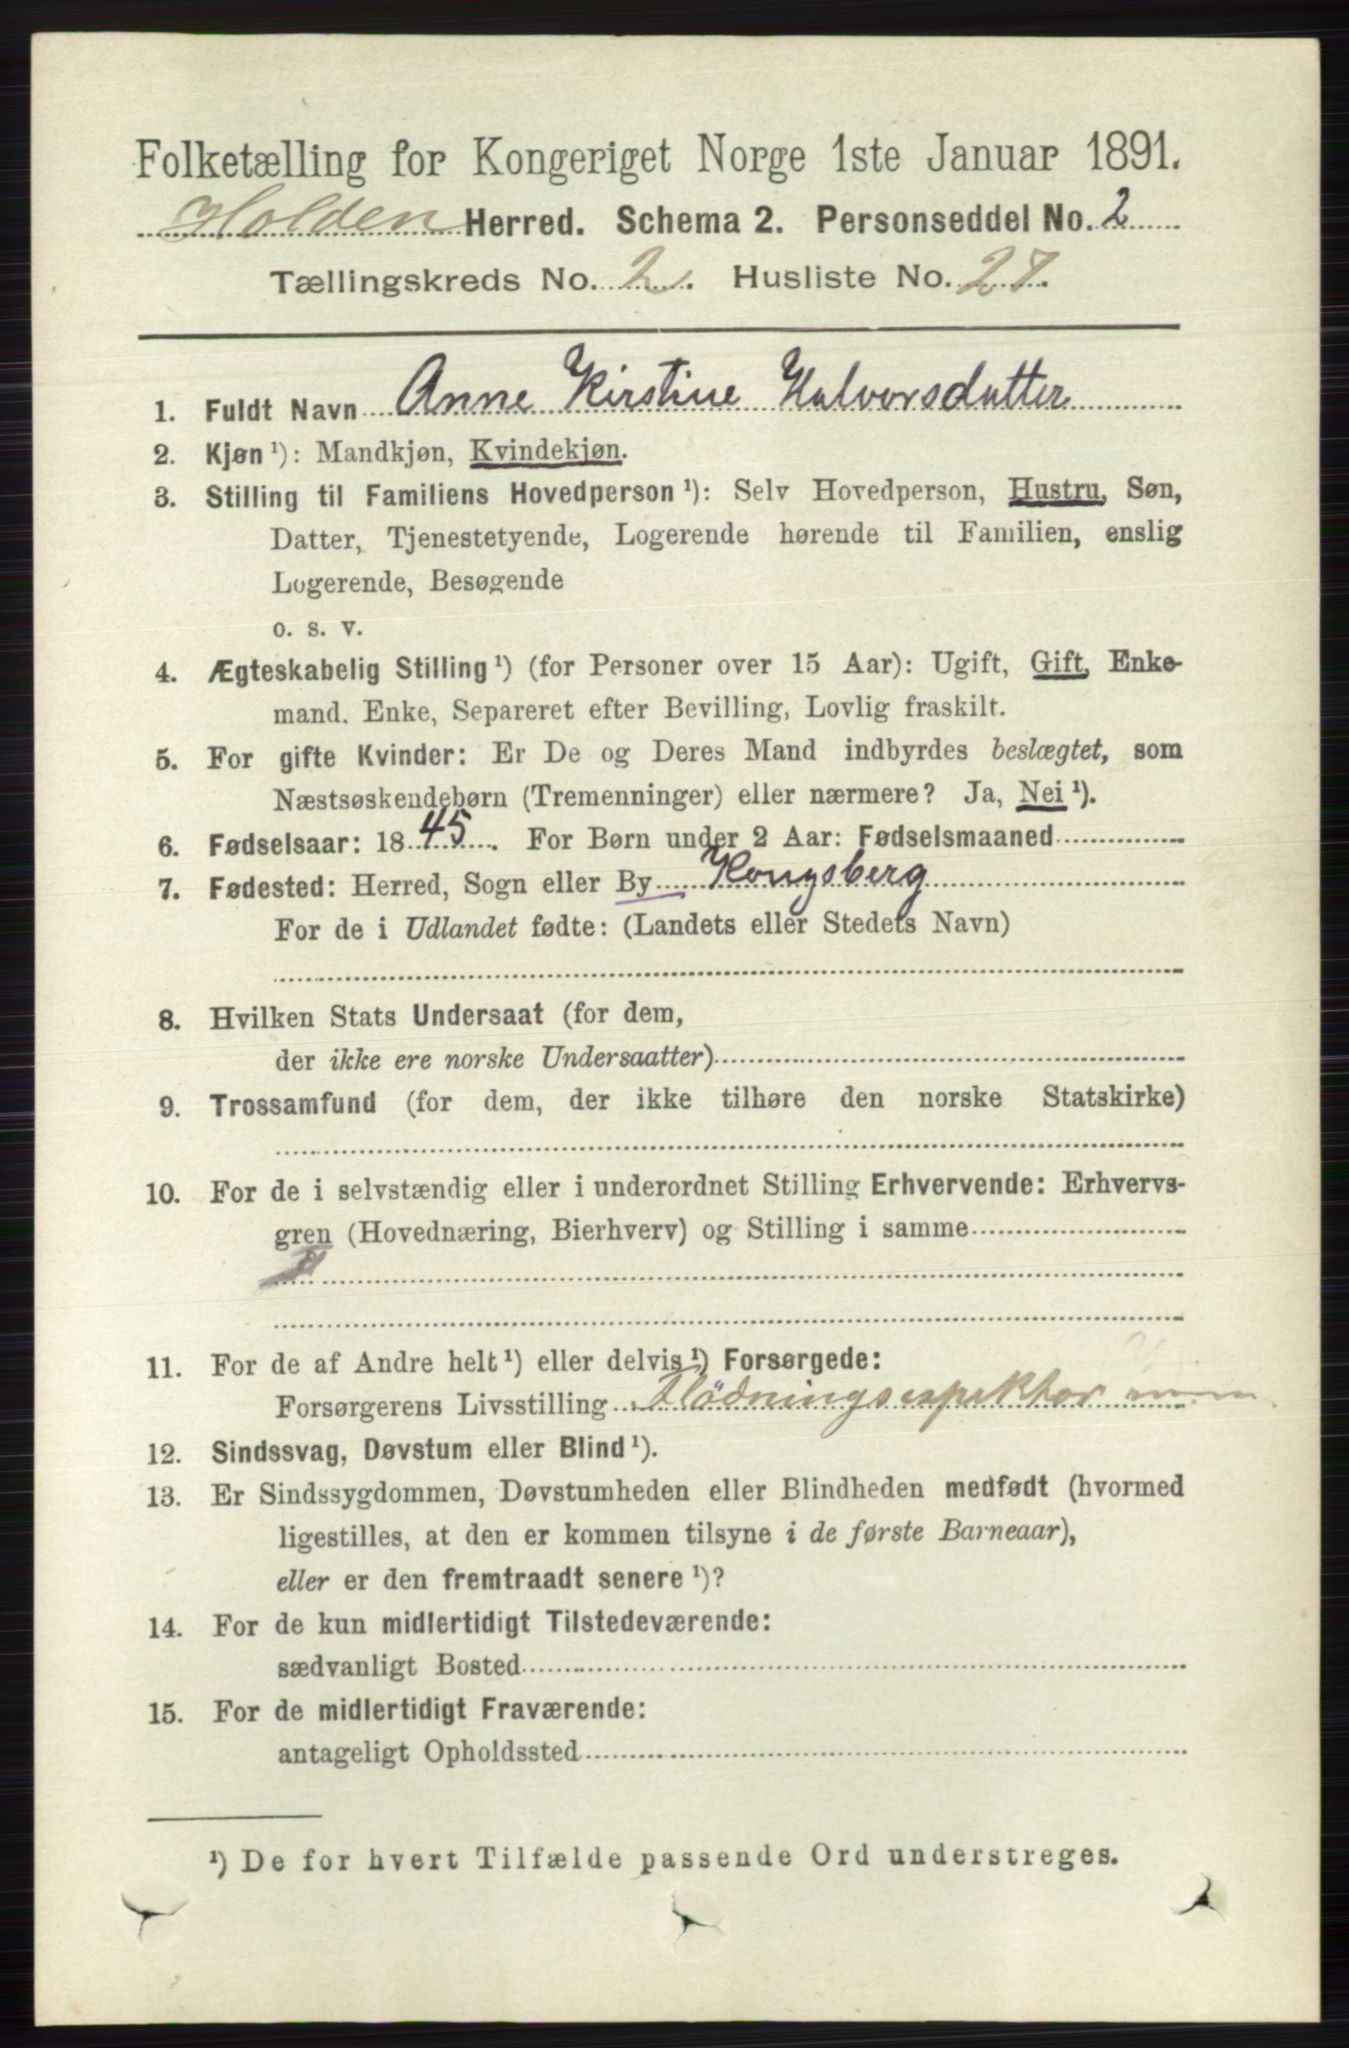 Folketælling for Kongeriget Norge 1ste Januar 1891.
Holden Herred. Schema 2. Personseddel No. 2
Tællingskreds No. 2. Husliste No. 27.
1. Fuldt Navn Anne Kirstine Halvorsdatter
2. Kjøn¹): Mandkjøn, Kvindekjøn.
3. Stilling til Familiens Hovedperson¹): Selv Hovedperson, Hustru, Søn,
Datter, Tjenestetyende, Logerende hørende til Familien, enslig
Logerende, Besøgende
o. s. v.
4. Ægteskabelig Stilling¹) (for Personer over 15 Aar): Ugift, Gift, Enke-
mand, Enke, Separeret efter Bevilling, Lovlig fraskilt.
5. For gifte Kvinder: Er De og Deres Mand indbyrdes beslægtet, som
Næstsøskendebørn (Tremenninger) eller nærmere? Ja, Nei¹).
6. Fødselsaar: 1845. For Børn under 2 Aar: Fødselsmaaned
7. Fødested: Herred, Sogn eller By Kongsberg
For de i Udlandet fødte: (Landets eller Stedets Navn)
8. Hvilken Stats Undersaat (for dem,
der ikke ere norske Undersaatter)
9. Trossamfund (for dem, der ikke tilhøre den norske Statskirke)
10. For de i selvstændig eller i underordnet Stilling Erhvervende: Erhvervs-
gren (Hovednæring, Bierhverv) og Stilling i samme
11. For de af Andre helt¹) eller delvis¹) Forsørgede:
Forsørgerens Livsstilling
12. Sindssvag, Døvstum eller Blind¹).
13. Er Sindssygdommen, Døvstumheden eller Blindheden medfødt (hvormed
ligestilles, at den er kommen tilsyne i de første Barneaar),
eller er den fremtraadt senere¹)?
14. For de kun midlertidigt Tilstedeværende:
sædvanligt Bosted
15. For de midlertidigt Fraværende:
antageligt Opholdssted
¹) De for hvert Tilfælde passende Ord understreges.